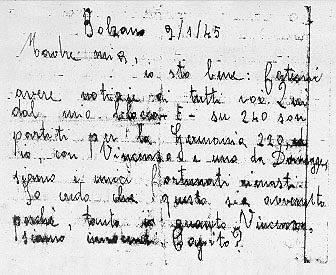 Bolzano 2/1/45
Madre mia,
io sto bene: fatemi
avere notizie di tutti voi
dal mio - su 240 son
partiti per la Germania 220,
io, con Vincenzo e uno da
e unici fortunati rimasti
Io credo che questo sia avvenuto
perché, tanto io quanto Vincenzo,
siamo innocenti Capito?